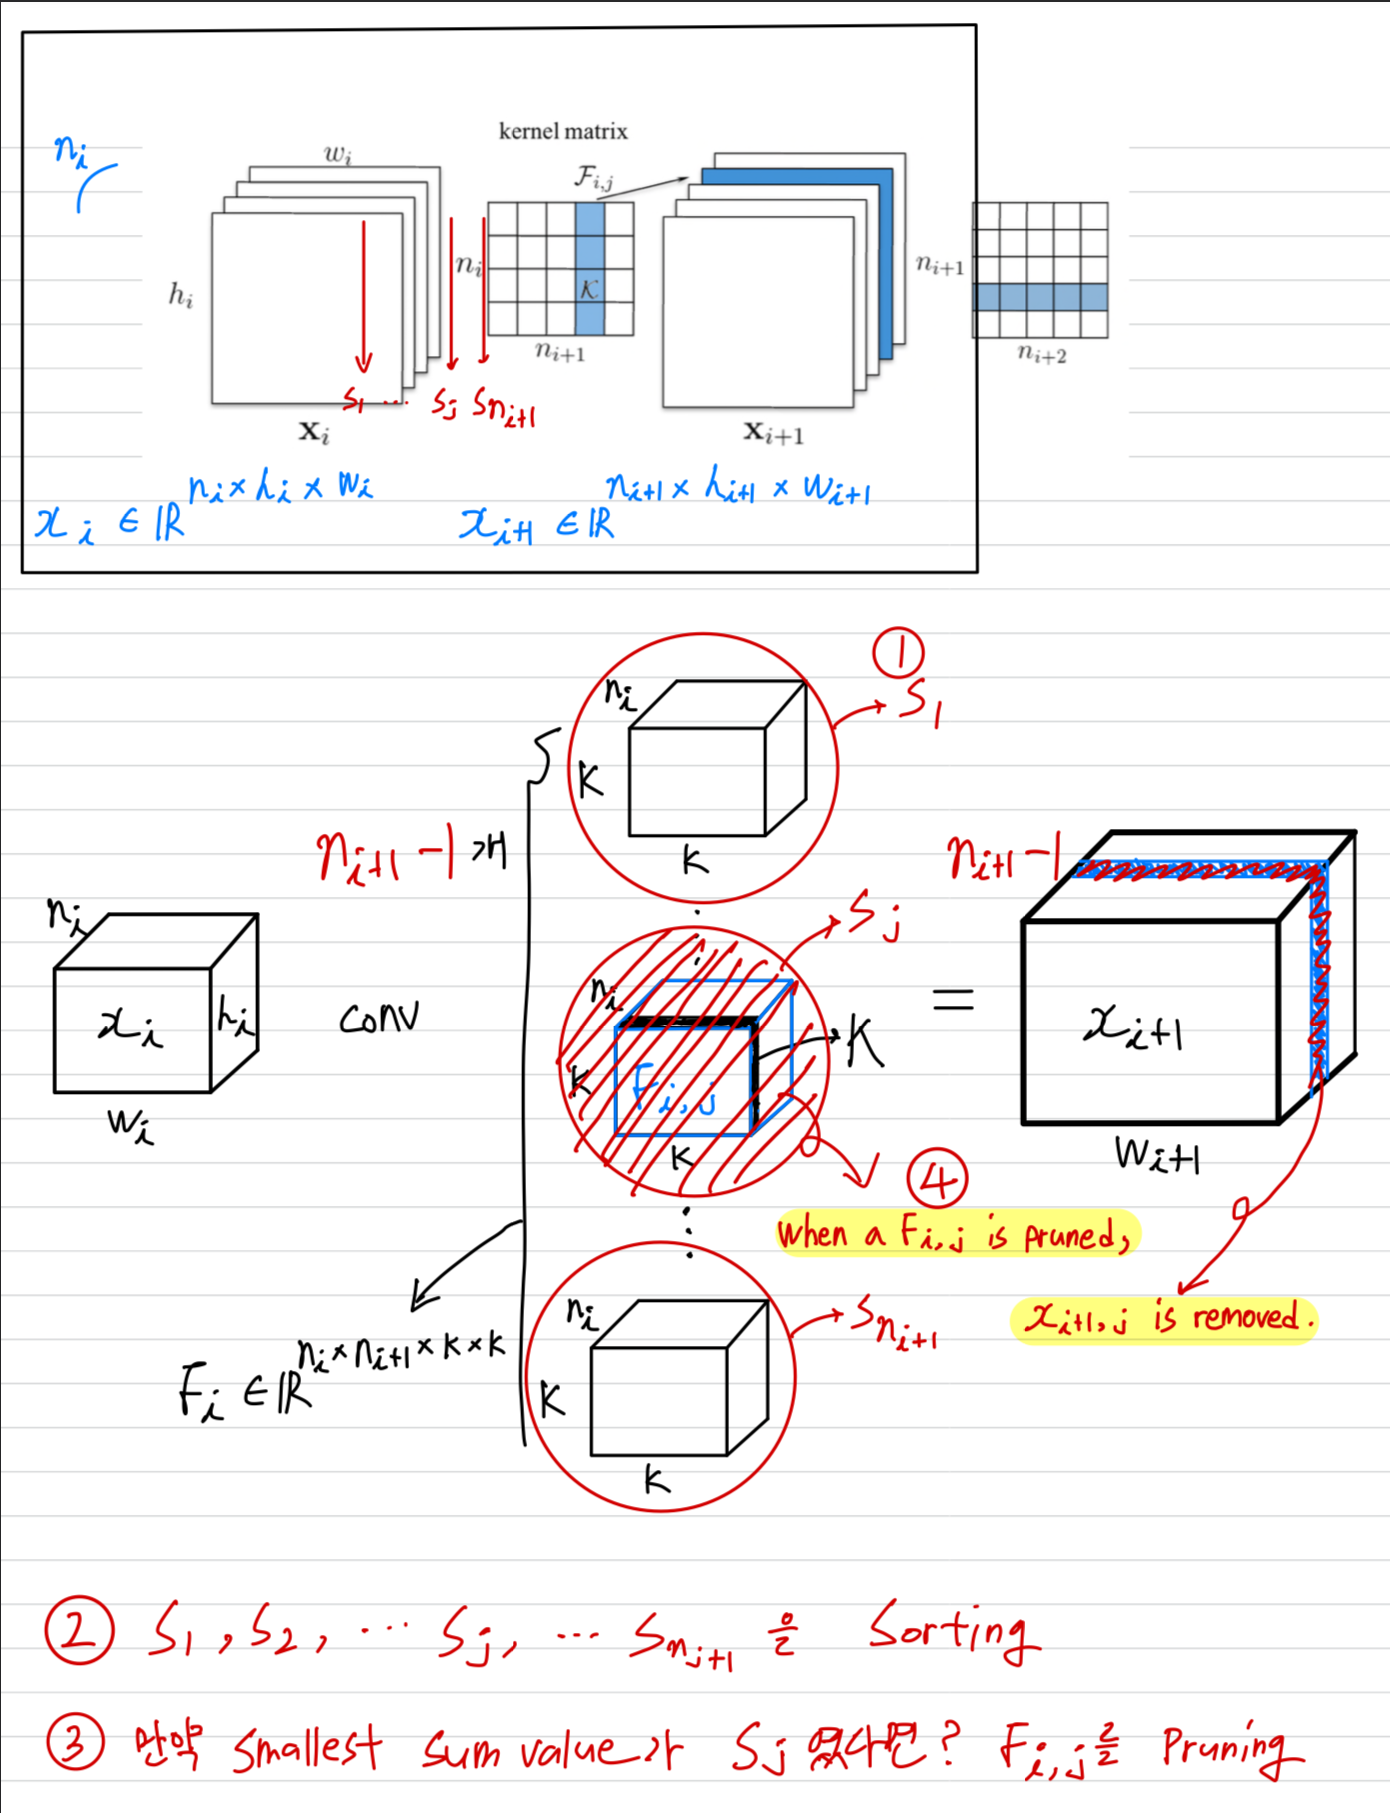 kernel matrix
n_i
w_i
F_{i,j}
h_i
n_i
K
n_{i+1}
n_{i+1}
n_{i+2}
S_1 ... S_j S_{n_{i+1}}
x_i
x_{i+1}
x_i ∈ ℝ^{n_i × h_i × w_i}
x_{i+1} ∈ ℝ^{n_{i+1} × h_{i+1} × w_{i+1}}
①
n_i
S_1
K
K
n_{i+1} - 1 개
n_{i+1} - 1
n_i
S_j
n_i
x_i
h_i
conv
K
K
F_{i,j}
=
x_{i+1}
w_i
K
w_{i+1}
④
When a F_{i,j} is pruned,
x_{i+1,j} is removed.
n_i
S_{n_{i+1}}
F_i ∈ ℝ^{n_i × n_{i+1} × K × K}
K
K
② S_1, S_2, ... S_j, ... S_{n_{j+1}} 을 Sorting
③ 만약 smallest sum value가 S_j 였다면? F_{i,j}를 Pruning